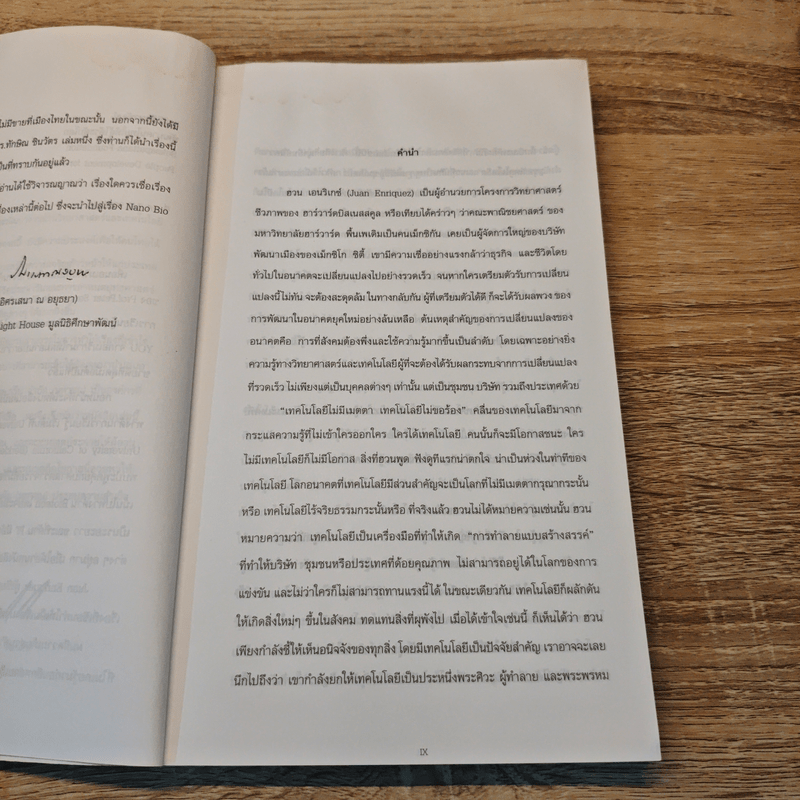 ไม่มีขายที่เมืองไทยในขณะนั้น นอกจากนี้ยังได้มี
ร.ทักษิณ ชินวัตร เล่มหนึ่ง ซึ่งท่านก็ได้นำเรื่องนี้
ป็นที่ทราบกันอยู่แล้ว
อ่านได้ใช้วิจารณญาณว่า เรื่องใดควรเชื่อเรื่อง
องเหล่านี้ต่อไป ซึ่งจะนำไปสู่เรื่อง Nano Bio
อิศรเสนา ณ อยุธยา)
ight House มูลนิธิศึกษาพัฒน์
คำนำ
ฮวน เอนริเกซ์ (Juan Enriquez) เป็นผู้อำนวยการโครงการวิทยาศาสตร์
ชีวภาพของ ฮาร์วาร์ดบิสเนสสคูล หรือเทียบได้คร่าวๆ ว่าคณะพาณิชยศาสตร์ ของ
มหาวิทยาลัยฮาร์วาร์ด พื้นเพเดิมเป็นคนเม็กซิกัน เคยเป็นผู้จัดการใหญ่ของบริษัท
พัฒนาเมืองของเม็กซิโก ซิตี้ เขามีความเชื่ออย่างแรงกล้าว่าธุรกิจ และชีวิตโดย
ทั่วไปในอนาคตจะเปลี่ยนแปลงไปอย่างรวดเร็ว จนหากใครเตรียมตัวรับการเปลี่ยน
แปลงนี้ไม่ทัน จะต้องสะดุดล้ม ในทางกลับกัน ผู้ที่เตรียมตัวได้ดี ก็จะได้รับผลพวง ของ
การพัฒนาในอนาคตยุคใหม่อย่างล้นเหลือ ต้นเหตุสำคัญของการเปลี่ยนแปลงของ
อนาคตคือ การที่สังคมต้องพึ่งและใช้ความรู้มากขึ้นเป็นลำดับ โดยเฉพาะอย่างยิ่ง
ความรู้ทางวิทยาศาสตร์และเทคโนโลยีผู้ที่จะต้องได้รับผลกระทบจากการเปลี่ยนแปลง
ที่รวดเร็ว ไม่เพียงแต่เป็นบุคคลต่างๆ เท่านั้น แต่เป็นชุมชน บริษัท รวมถึงประเทศด้วย
“เทคโนโลยีไม่มีเมตตา เทคโนโลยีไม่ขอร้อง” คลื่นของเทคโนโลยีมาจาก
กระแสความรู้ที่ไม่เข้าใครออกใคร ใครได้เทคโนโลยี คนนั้นก็จะมีโอกาสชนะ ใคร
ไม่มีเทคโนโลยีก็ไม่มีโอกาส สิ่งที่ฮวนพูด ฟังดูทีแรกน่าตกใจ น่าเป็นห่วงในท่าทีของ
เทคโนโลยี โลกอนาคตที่เทคโนโลยีมีส่วนสำคัญจะเป็นโลกที่ไม่มีเมตตากรุณากระนั้น
หรือ เทคโนโลยีไร้จริยธรรมกระนั้นหรือ ที่จริงแล้ว ฮวนไม่ได้หมายความเช่นนั้น ฮวน
หมายความว่า เทคโนโลยีเป็นเครื่องมือที่ทำให้เกิด “การทำลายแบบสร้างสรรค์”
ที่ทำให้บริษัท ชุมชนหรือประเทศที่ด้อยคุณภาพ ไม่สามารถอยู่ได้ในโลกของการ
แข่งขัน และไม่ว่าใครก็ไม่สามารถทานแรงนี้ได้ ในขณะเดียวกัน เทคโนโลยีก็ผลักดัน
ให้เกิดสิ่งใหม่ๆ ขึ้นในสังคม ทดแทนสิ่งที่ผุพังไป เมื่อได้เข้าใจเช่นนี้ ก็เห็นได้ว่า ฮวน
เพียงกำลังชี้ให้เห็นอนิจจังของทุกสิ่ง โดยมีเทคโนโลยีเป็นปัจจัยสำคัญ เราอาจจะเลย
นึกไปถึงว่า เขากำลังยกให้เทคโนโลยีเป็นประหนึ่งพระศิวะ ผู้ทำลาย และพระพรหม
IX